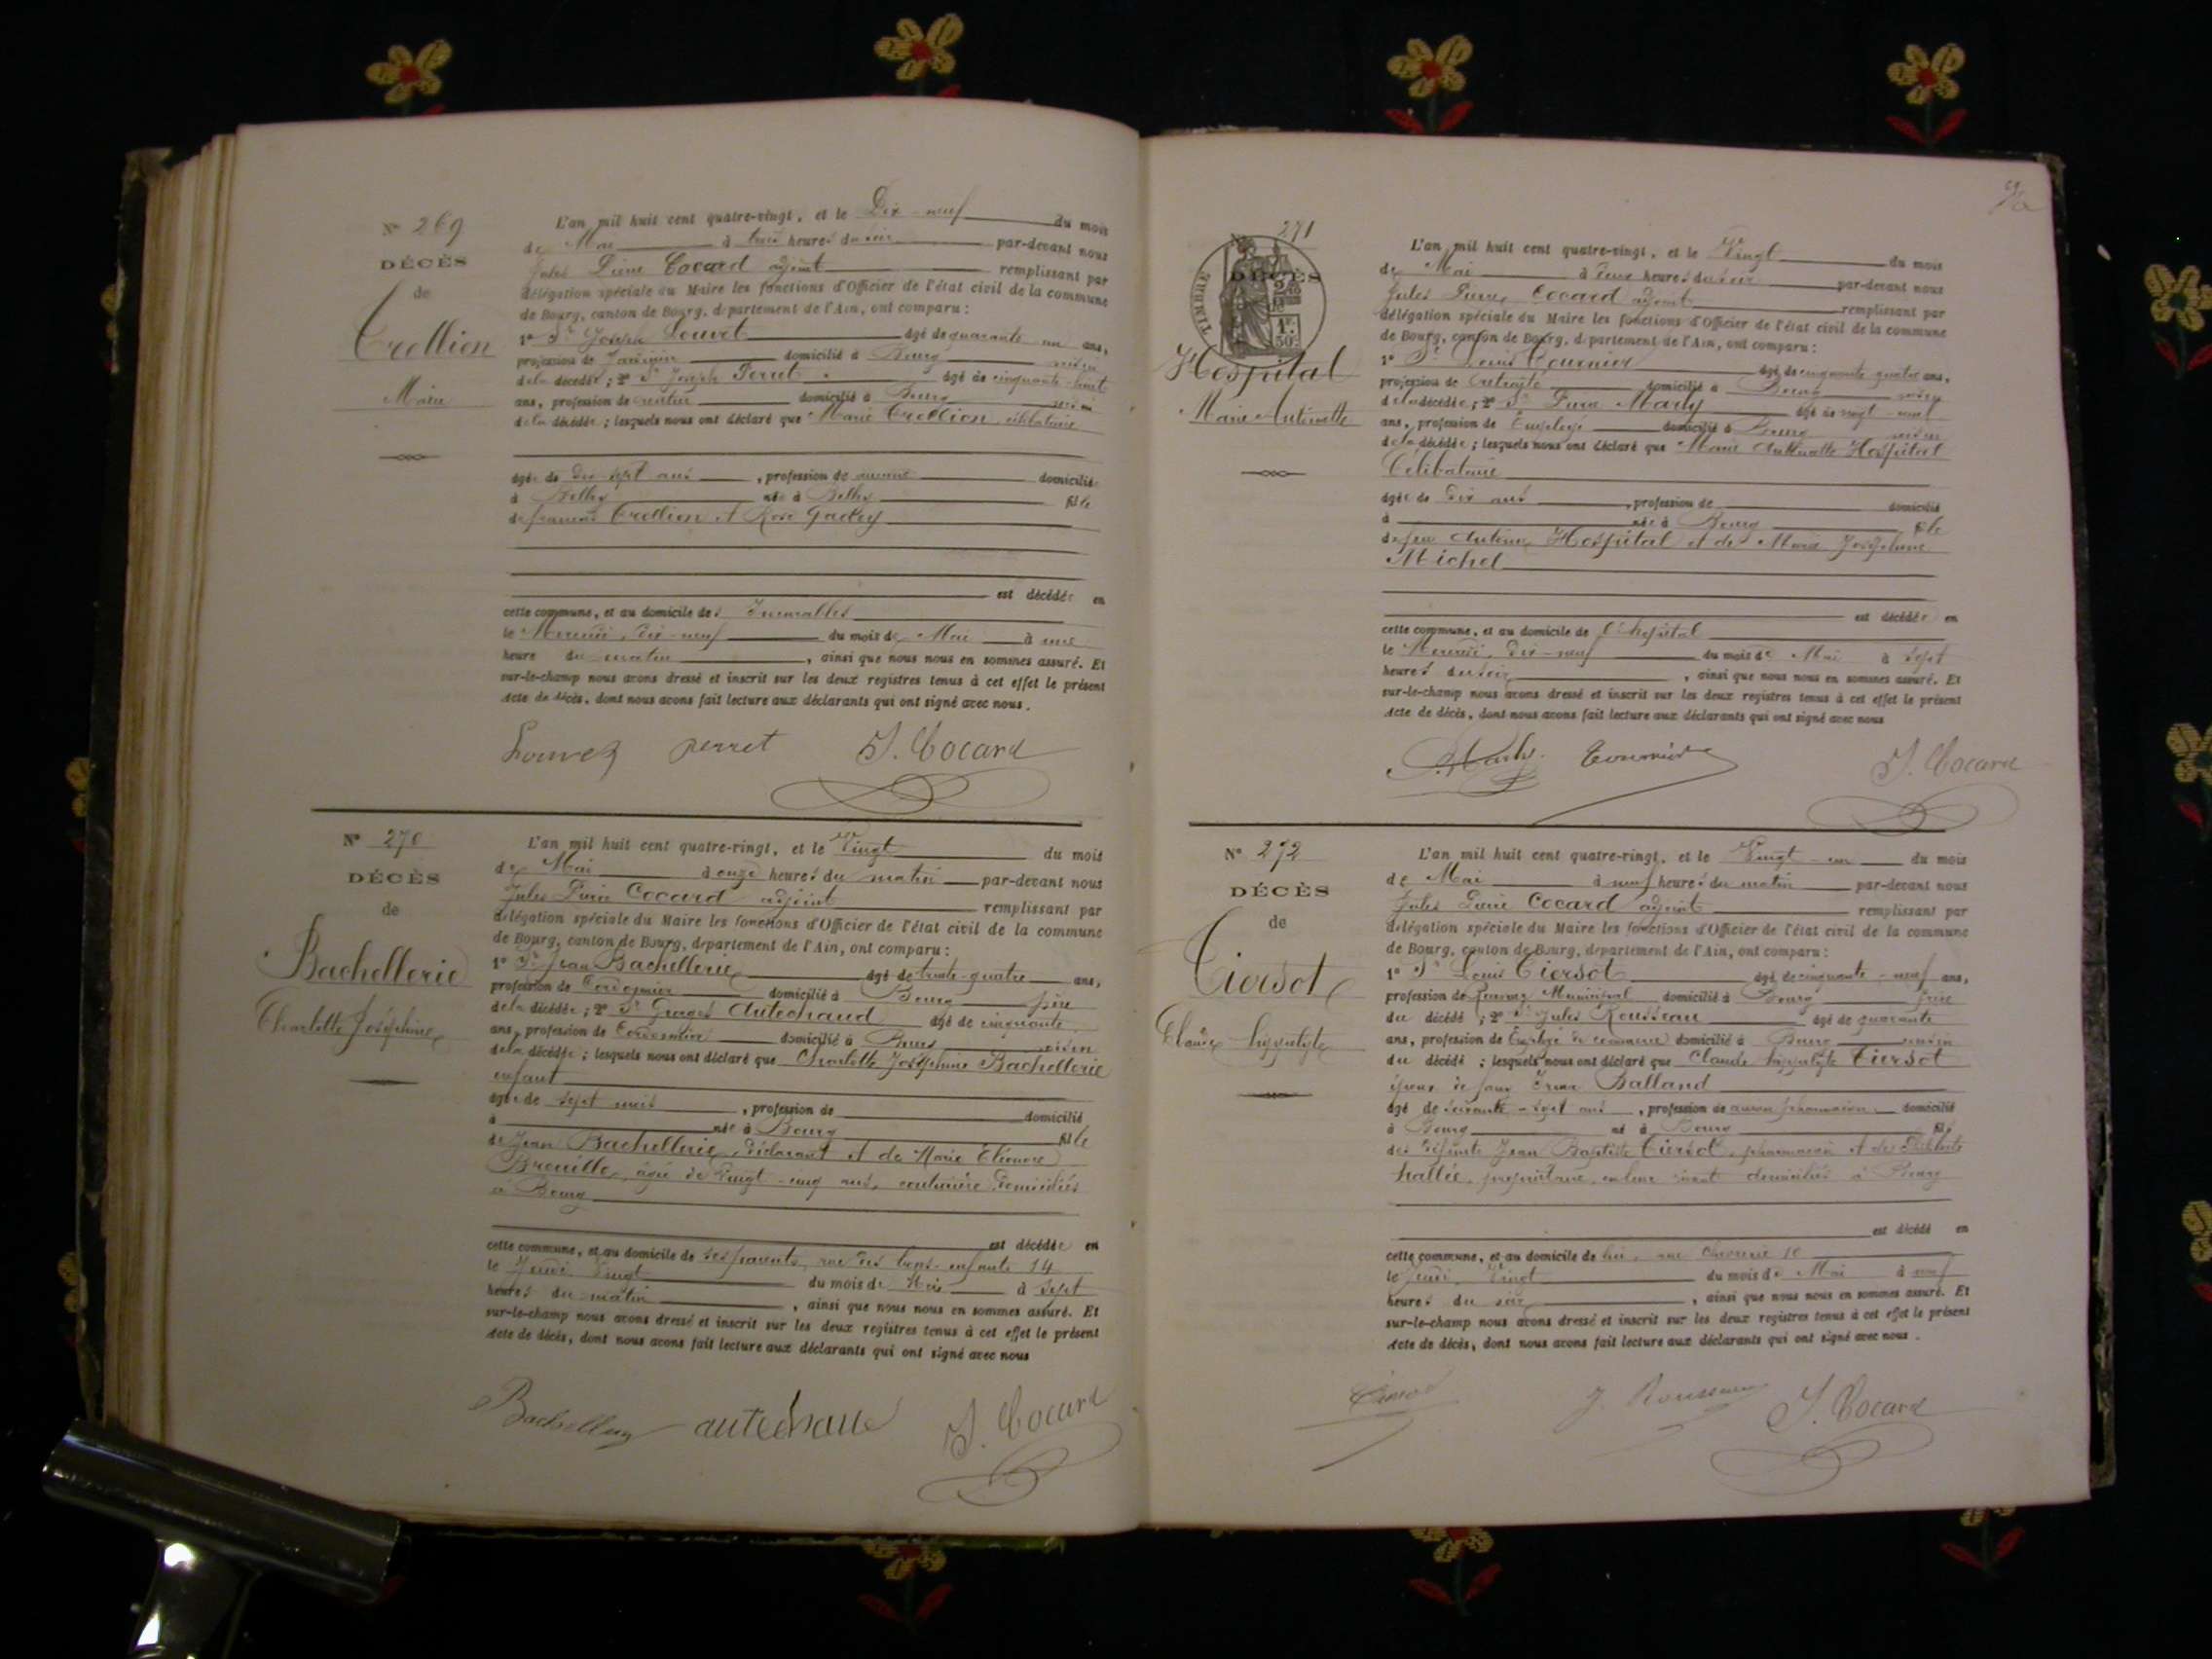 Nº 269
DÉCÈS
de
Crollion
Marie
L'an mil huit cent quatre-vingt, et le Dix-neuf du mois
de Mai à trois heures du soir par-devant nous
Jules Pierre Cocard adjoint remplissant par
délégation spéciale du Maire les fonctions d'Officier de l'état civil de la commune
de Bourg, canton de Bourg, département de l'Ain, ont comparu :
1º Sr Joseph Louvet âgé de quarante un ans,
profession de domicilié à Bourg voisin
de la décédée ; 2º Sr Joseph Perret âgé de cinquante-huit
ans, profession de rentier domicilié à Bourg voisin
de la décédée ; lesquels nous ont déclaré que Marie Crollion, célibataire
âgée de dix-sept ans, profession de domicilié
à Belley née à Belley fille
de François Crollion et Rose Gachy
est décédée en
cette commune, et au domicile des Incurables
le Mercredi, dix-neuf du mois de Mai à une
heure du matin, ainsi que nous nous en sommes assuré. Et
sur-le-champ nous avons dressé et inscrit sur les deux registres tenus à cet effet le présent
acte de décès, dont nous avons fait lecture aux déclarants qui ont signé avec nous.
Louvet perret J. Cocard
Nº 270
DÉCÈS
de
Bachellerie
Charlotte Joséphine
L'an mil huit cent quatre-vingt, et le Vingt du mois
de Mai à onze heures du matin par-devant nous
Jules Pierre Cocard adjoint remplissant par
délégation spéciale du Maire les fonctions d'Officier de l'état civil de la commune
de Bourg, canton de Bourg, département de l'Ain, ont comparu :
1º Sr Jean Bachellerie âgé de trente-quatre ans,
profession de Cordonnier domicilié à Bourg père
de la décédée ; 2º Sr Georges Autechaud âgé de cinquante
ans, profession de Cordonnier domicilié à Bourg voisin
de la décédée ; lesquels nous ont déclaré que Charlotte Joséphine Bachellerie
enfant
âgée de sept mois, profession de domicilié
à née à Bourg fille
de Jean Bachellerie, déclarant et de Marie Eléonore
Breuille, âgée de vingt-cinq ans, couturière domiciliés
à Bourg
est décédée en
cette commune, et au domicile de ses parents, rue des bons-enfants 14
le Jeudi Vingt du mois de Mai à sept
heures du matin, ainsi que nous nous en sommes assuré. Et
sur-le-champ nous avons dressé et inscrit sur les deux registres tenus à cet effet le présent
acte de décès, dont nous avons fait lecture aux déclarants qui ont signé avec nous
Bachellerie autechaud J. Cocard
271
DÉCÈS
TIMBRE
1F.
50c
Hospital
Marie Antoinette
L'an mil huit cent quatre-vingt, et le Vingt du mois
de Mai à deux heures du soir par-devant nous
Jules Pierre Cocard adjoint remplissant par
délégation spéciale du Maire les fonctions d'Officier de l'état civil de la commune
de Bourg, canton de Bourg, département de l'Ain, ont comparu :
1º Sr Louis Tournier âgé de cinquante-quatre ans,
profession de retraité domicilié à Bourg voisin
de la décédée ; 2º Sr Pierre Marly âgé de vingt-neuf
ans, profession de Employé domicilié à Bourg voisin
de la décédée ; lesquels nous ont déclaré que Marie Antoinette Hospital
Célibataire
âgée de dix ans, profession de domicilié
à née à Bourg fille
de feu Antoine Hospital et de Marie Joséphine
Michel
est décédée en
cette commune, et au domicile de l'hôpital
le Mercredi, dix-neuf du mois de Mai à sept
heures du soir, ainsi que nous nous en sommes assuré. Et
sur-le-champ nous avons dressé et inscrit sur les deux registres tenus à cet effet le présent
acte de décès, dont nous avons fait lecture aux déclarants qui ont signé avec nous
P. Marly. Tournier J. Cocard
Nº 272
DÉCÈS
de
Tiersot
Claude Hippolyte
L'an mil huit cent quatre-vingt, et le Vingt-un du mois
de Mai à neuf heures du matin par-devant nous
Jules Pierre Cocard adjoint remplissant par
délégation spéciale du Maire les fonctions d'Officier de l'état civil de la commune
de Bourg, canton de Bourg, département de l'Ain, ont comparu :
1º Sr Louis Tiersot âgé de cinquante-neuf ans,
profession de Receveur Municipal domicilié à Bourg frère
du décédé ; 2º Sr Jules Rousseau âgé de quarante
ans, profession de Employé de commerce domicilié à Bourg voisin
du décédé ; lesquels nous ont déclaré que Claude Hippolyte Tiersot
époux de Balland
âgé de soixante-sept ans, profession de ancien pharmacien domicilié
à Bourg né à Bourg fils
des défunts Jean Baptiste Tiersot, pharmacien et de
hallée, propriétaire, en leur vivant domiciliés à Bourg
est décédé en
cette commune, et au domicile de lui, rue 10
le Jeudi, Vingt du mois de Mai à neuf
heures du soir, ainsi que nous nous en sommes assuré. Et
sur-le-champ nous avons dressé et inscrit sur les deux registres tenus à cet effet le présent
acte de décès, dont nous avons fait lecture aux déclarants qui ont signé avec nous.
Tiersot J. Rousseau J. Cocard